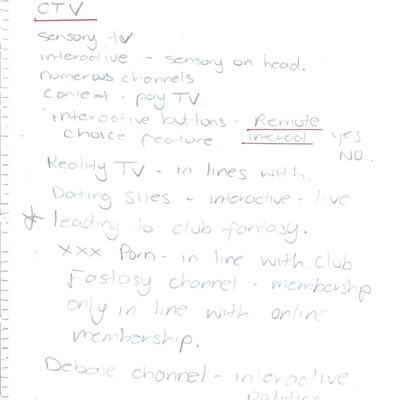 CTV
sensory tv
interactive - sensory on head.
numerous channels
context - pay TV.
interactive buttons - Remote
choice feature interact yes
NO.
Reality TV - in lines with.
Dating Sites - interactive - live
* leading to club fantasy.
xxx Porn - in line with club
Fastasy channel - membership
only in line with online
membership.
Debate channel - interactive
Politics